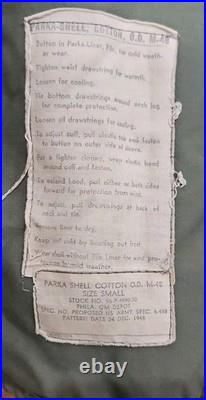 PARKA-SHELL, COTTON, O.D. M-48
Button in Parka-Liner, Pile, for cold weath-
er wear.
Tighten waist drawstring for warmth.
Loosen for cooling.
Tie bottom drawstrings around each leg
for complete protection.
Loosen all drawstrings for cooling.
To adjust cuff, pull elastic tab from
to button on outer side of sleeve.
For a tighter closing, wrap elastic band
around cuff and fasten.
To extend hood, pull either or both sides
forward for protection from wind.
To adjust, pull drawstrings at back of
neck and tie.
Remove liner to dry.
Keep out cold by beating out frost.
without Pile Liner for wind-
in mild weather.
PARKA SHELL COTTON O.D. M-48
SIZE SMALL
STOCK NO.
PHILA. QM DEPOT
SPEC. NO. PROPOSED US ARMY SPEC.
PATTERN DATE 24 DEC. 1948